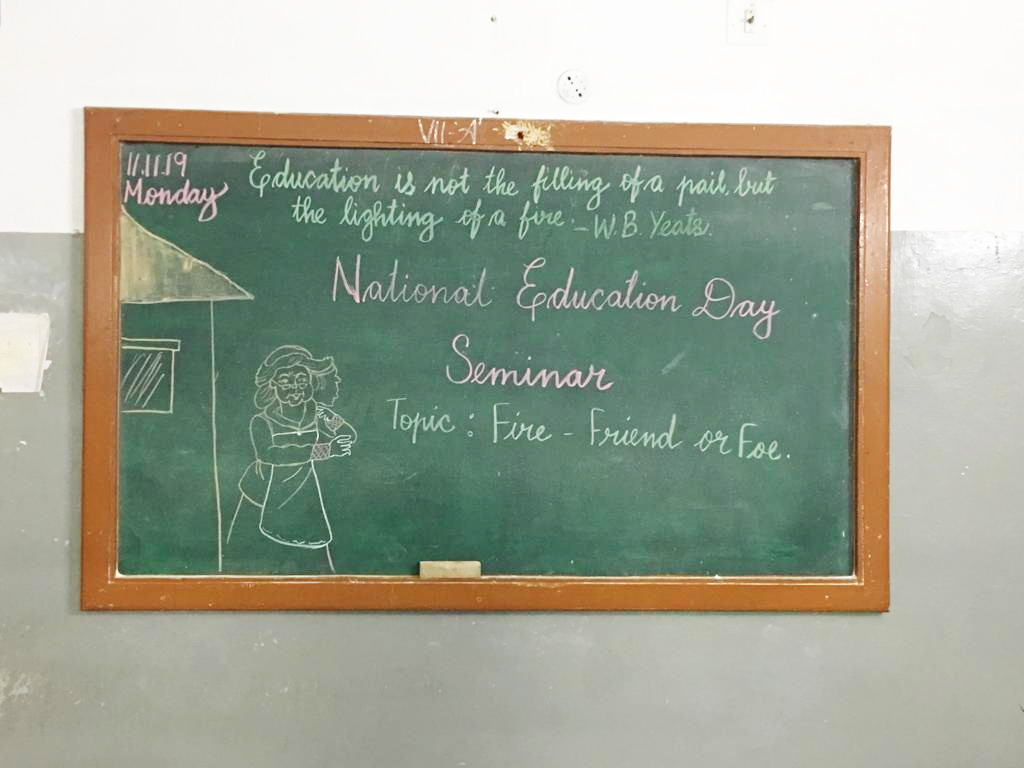 VII-'A'
11.11.19
Monday
Education is not the filling of a pail, but
the lighting of a fire. - W.B. Yeats.
National Education Day
Seminar
Topic : Fire - Friend or Foe.